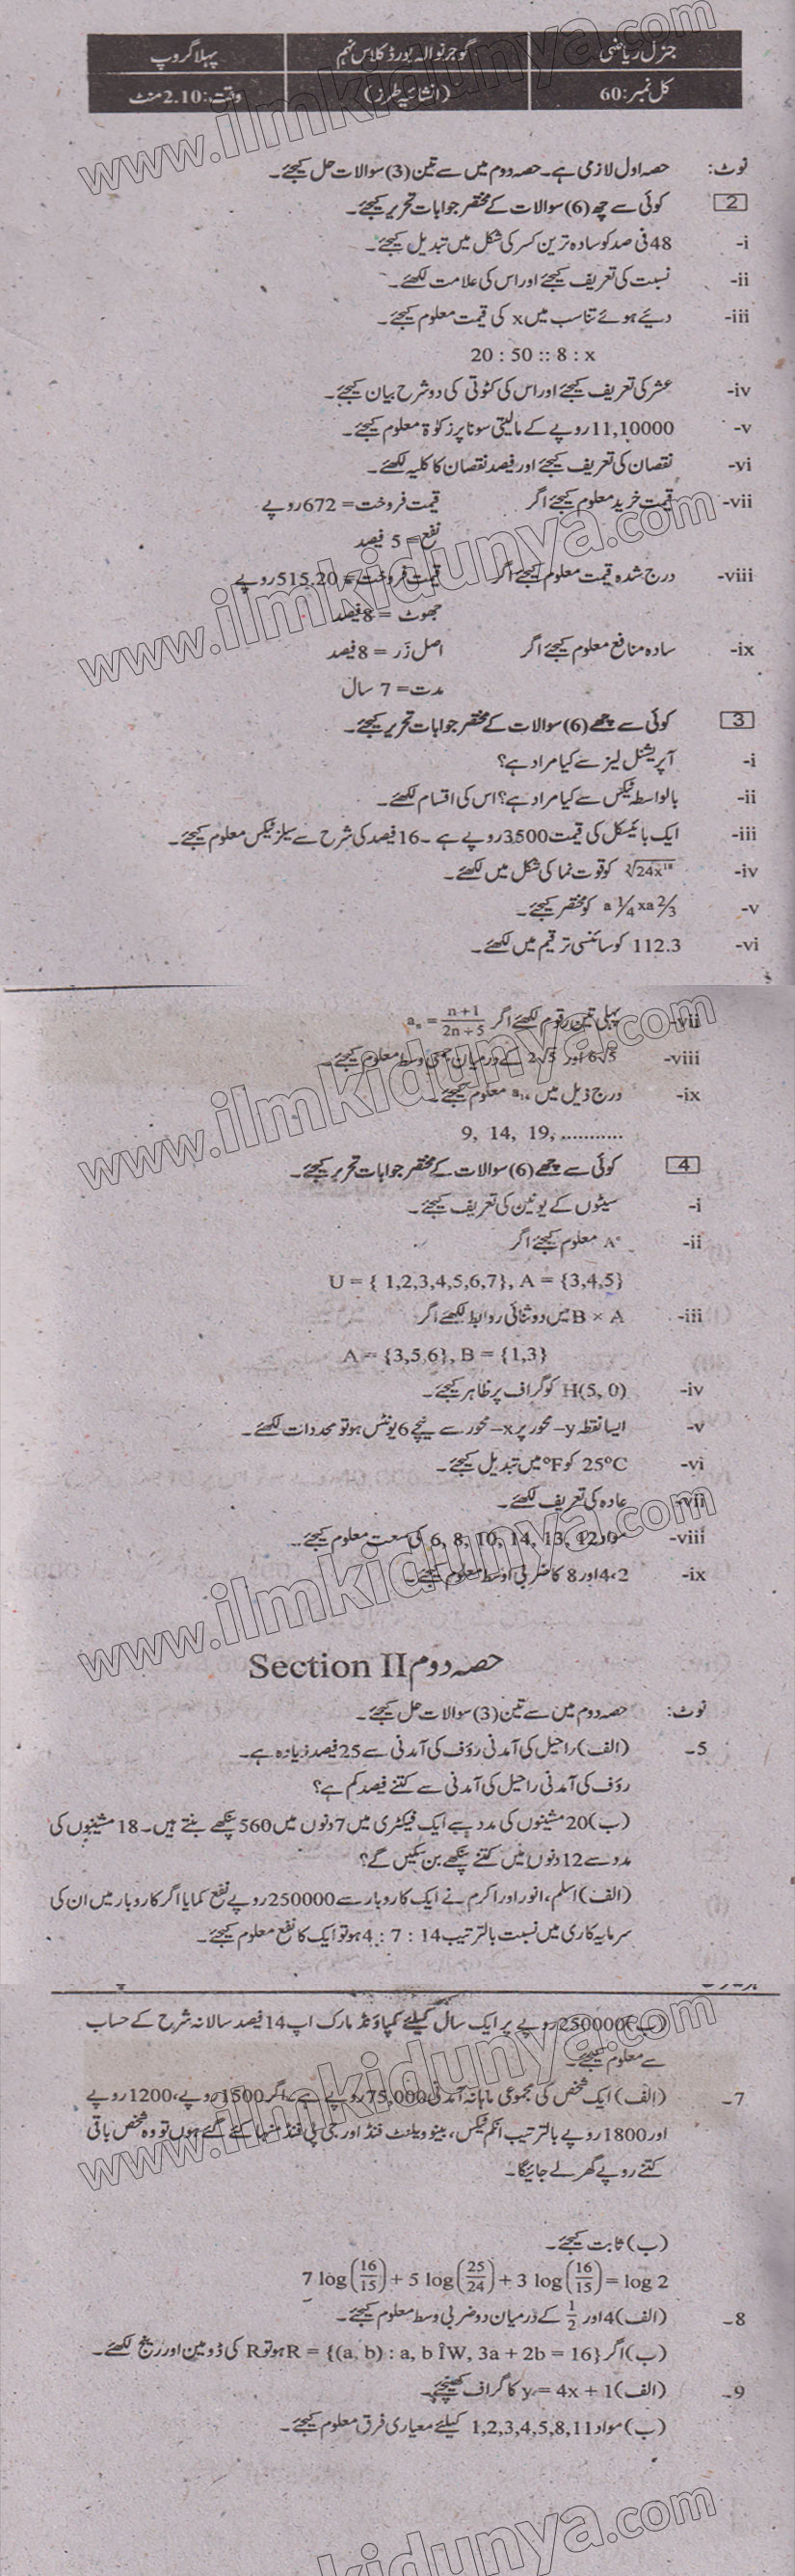 جنرل ریاضی گوجرنوالہ بورڈ کلاس نہم پہلا گروپ
کل نمبر: 60 (انشائیہ طرز) وقت: 2.10 منٹ
نوٹ: حصہ اول لازمی ہے۔ حصہ دوم میں سے تین (3) سوالات حل کیجئے۔
2 کوئی سے چھ (6) سوالات کے مختصر جوابات تحریر کیجئے۔
i- 48 فی صد کو سادہ ترین کسر کی شکل میں تبدیل کیجئے۔
ii- نسبت کی تعریف کیجئے اور اس کی علامت لکھئے۔
iii- دیئے ہوئے تناسب میں x کی قیمت معلوم کیجئے۔
20 : 50 :: 8 : x
iv- عشر کی تعریف کیجئے اور اس کی کٹوتی کی دو شرح بیان کیجئے۔
v- 11,10000 روپے کے مالیتی سونا پر زکوٰۃ معلوم کیجئے۔
vi- نقصان کی تعریف کیجئے اور فیصد نقصان کا کلیہ لکھئے۔
vii- قیمت خرید معلوم کیجئے اگر قیمت فروخت = 672 روپے
نفع = 5 فیصد
viii- درج شدہ قیمت معلوم کیجئے اگر قیمت فروخت = 515.20 روپے
چھوٹ = 8 فیصد
ix- سادہ منافع معلوم کیجئے اگر اصل زر = 8 فیصد
مدت = 7 سال
3 کوئی سے چھے (6) سوالات کے مختصر جوابات تحریر کیجئے۔
i- آپریشنل لیز سے کیا مراد ہے؟
ii- بالواسطہ ٹیکس سے کیا مراد ہے؟ اس کی اقسام لکھئے۔
iii- ایک بائیسکل کی قیمت 3500 روپے ہے۔ 16 فیصد کی شرح سے سیلز ٹیکس معلوم کیجئے۔
iv- √24x¹⁸ کو قوت نما کی شکل میں لکھئے۔
v- a ¼ xa ⅔ کو مختصر کیجئے۔
vi- 112.3 کو سائنسی ترقیم میں لکھئے۔
vii- پہلی تین رقوم لکھئے اگر aₙ = (n+1)/(2n+5)
viii- 6√5 اور 2√5 کے درمیان جمعی وسط معلوم کیجئے۔
ix- درج ذیل میں معلوم کیجئے۔
9, 14, 19, ...........
4 کوئی سے چھے (6) سوالات کے مختصر جوابات تحریر کیجئے۔
i- سیٹوں کے یونین کی تعریف کیجئے۔
ii- Aᶜ معلوم کیجئے اگر
U = { 1,2,3,4,5,6,7}, A = {3,4,5}
iii- B × A میں دو ثنائی روابط لکھئے اگر
A = {3,5,6}, B = {1,3}
iv- H(5, 0) کو گراف پر ظاہر کیجئے۔
v- ایسا نقطہ y- محور پر x- محور سے نیچے 6 یونٹس ہو تو محددات لکھئے۔
vi- 25°C کو °F میں تبدیل کیجئے۔
vii- عادہ کی تعریف لکھئے۔
viii- مواد 6, 8, 10, 14, 13, 12 کی سعت معلوم کیجئے۔
ix- 2،4 اور 8 کا ضربی اوسط معلوم کیجئے۔
حصہ دوم Section II
نوٹ: حصہ دوم میں سے تین (3) سوالات حل کیجئے۔
5۔ (الف) راحیل کی آمدنی رؤف کی آمدنی سے 25 فیصد زیادہ ہے۔
رؤف کی آمدنی راحیل کی آمدنی سے کتنے فیصد کم ہے؟
(ب) 20 مشینوں کی مدد سے ایک فیکٹری میں 7 دنوں میں 560 پنکھے بنتے ہیں۔ 18 مشینوں کی
مدد سے 12 دنوں میں کتنے پنکھے بن سکیں گے؟
(الف) اسلم، انور اور اکرم نے ایک کاروبار سے 250000 روپے نفع کمایا اگر کاروبار میں ان کی
سرمایہ کاری میں نسبت بالترتیب 14 : 7 : 4 ہو تو ایک کا نفع معلوم کیجئے۔
(ب) 250000 روپے پر ایک سال کیلئے کمپاؤنڈ مارک اپ 14 فیصد سالانہ شرح کے حساب
سے معلوم کیجئے۔
7۔ (الف) ایک شخص کی مجموعی ماہانہ آمدنی 75,000 روپے ہے، اگر 1500 روپے، 1200 روپے
اور 1800 روپے بالترتیب انکم ٹیکس، بینوویلنٹ فنڈ اور جی پی فنڈ منہا کئے گئے ہوں تو وہ شخص باقی
کتنے روپے گھر لے جائیگا۔
(ب) ثابت کیجئے۔
7 log(16/15) + 5 log(25/24) + 3 log(16/15) = log 2
8۔ (الف) 4 اور 1/2 کے درمیان دو ضربی وسط معلوم کیجئے۔
(ب) اگر R = {(a, b) : a, b ÎW, 3a + 2b = 16} ہو تو R کی ڈومین اور رینج لکھئے۔
9۔ (الف) y = 4x + 1 کا گراف کھینچئے۔
(ب) مواد 1,2,3,4,5,8,11 کیلئے معیاری فرق معلوم کیجئے۔
www.ilmkidunya.com
www.ilmkidunya.com
www.ilmkidunya.com
www.ilmkidunya.com
www.ilmkidunya.com
kidunya.com